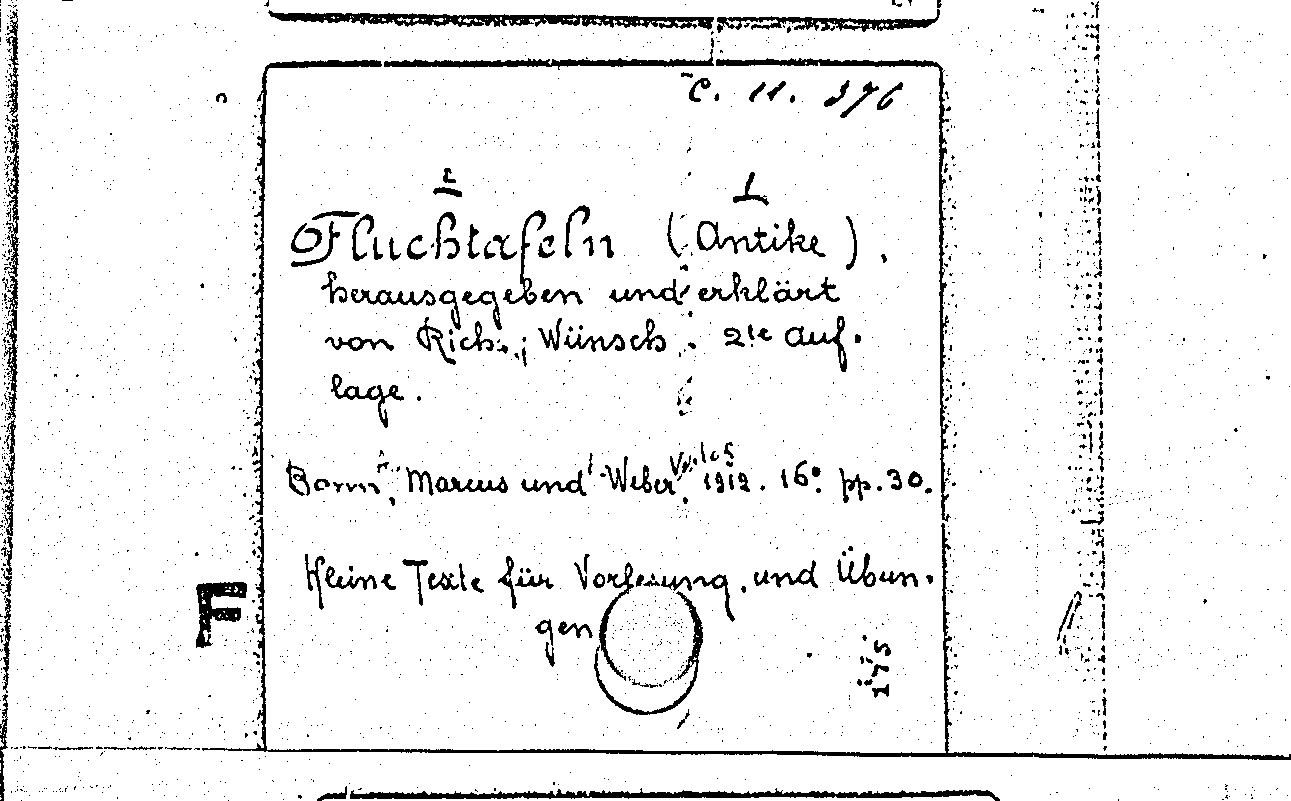 C. 11. 376
2 1
Fluchtafeln (Antike).
herausgegeben und erklärt
von Rich. Wünsch. 2te Auf-
lage.
Bonn, Marcus und Weber, Verlag
1912. 16°. pp. 30.
Kleine Texte für Vorlesung und Übun-
gen
F
175